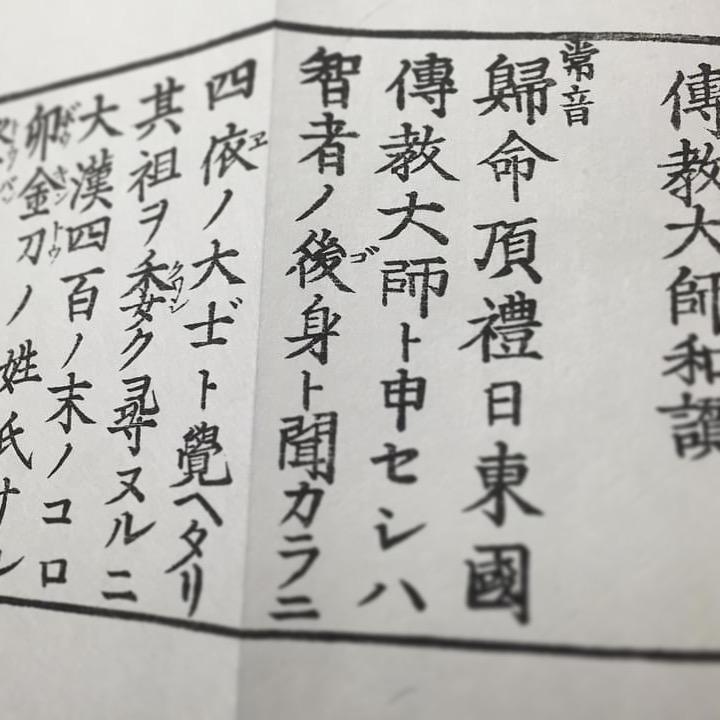 傳教大師和讃
常音
歸命頂禮日東國
傳教大師ト申セシハ
智者ノ後身ト聞カラニ
ゴ
四依ノ大士ト覺ヘタリ
ヱ
其祖ヲ委ク尋ヌルニ
クワシ
大漢四百ノ末ノコロ
卯金刀ノ姓氏
ボウキントウ